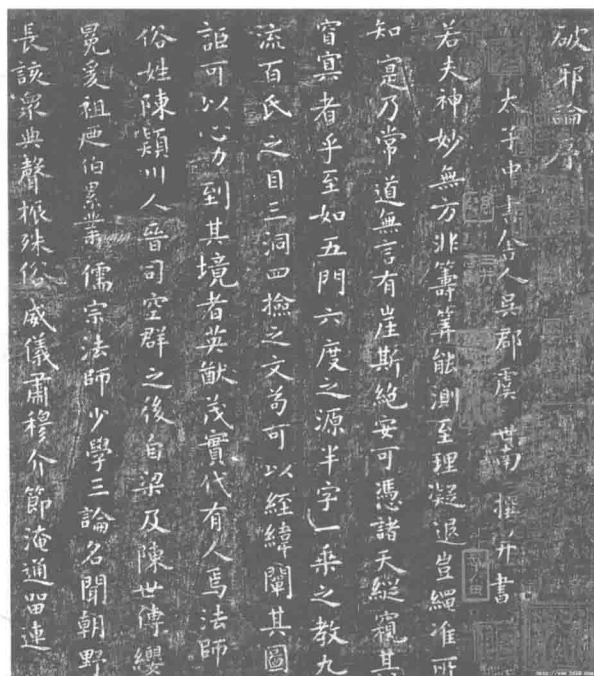 破邪論序
太子中書舍人吳郡虞世南撰并書
若夫神妙無方非籌筭能測至理凝邈豈繩准所
知寔乃常道無言有崖斯絶安可憑諸天縱窺其
窅冥者乎至如五門六度之源半字一乘之教九
流百氏之目三洞四檢之文苟可以經緯闡其圖
詎可以心力到其境者英猷茂實代有人焉法師
俗姓陳潁川人晉司空群之後自梁及陳世傳纓
冕爰祖逮伯累業儒宗法師少學三論名聞朝野
長該衆典聲振殊俗威儀肅穆介節淹通留連